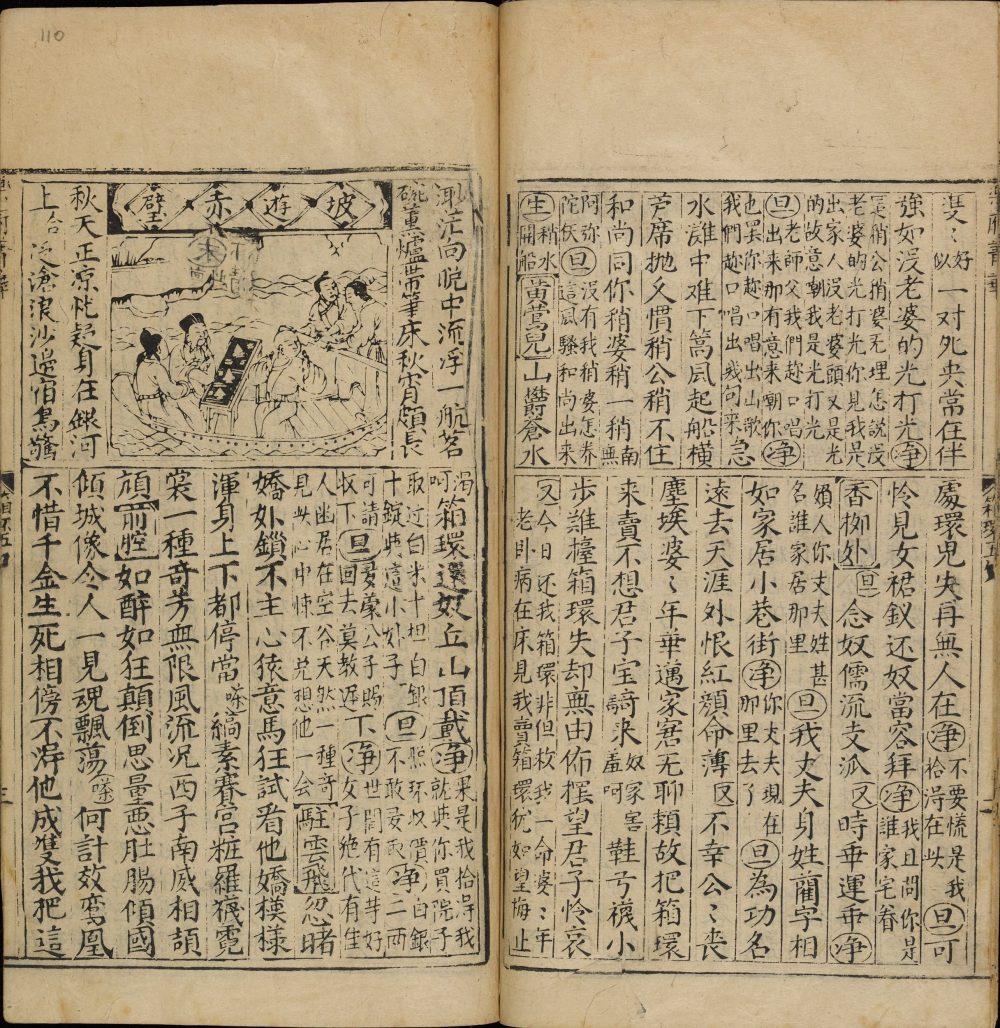 雙〻好似一对死央常在伴
強如没老婆的光打光淨
是稍公稍婆无理怎説没
老婆的光打光你見我是
出家人没老婆頭又是光
的故意嘲我是光打光
旦老師父我們趂口唱
出來那有意來嘲你淨
也罢你趂口唱出山歌
我們趂口唱出幾句來急
水灘中难下篙风起船横
芦席抛又慣稍公稍不住
和尚同你稍婆稍一稍南無
阿弥陀佚旦没有我稍婆怎养
這風騷和尚出來
生稍水開船黄鶯兒山欝蒼水
處環兒失再無人在淨不要慌是我拾淂在此旦可
怜見女裙釵还奴當容拜淨我且問你是誰家宅眷
香柳外旦念奴儒流支派又時乖運乖淨
嬾人你丈夫姓甚名誰家居那里旦我丈夫身姓藺字相
如家居小巷街淨你丈夫現在那里去了旦為功名
遠去天涯外恨紅顔命薄又不幸公〻丧
塵埃婆〻年華邁家窘无聊頼故把箱環
來賣不想君子宝騎來奴家害羞呵鞋弓襪小
步誰擡箱環失却無由佈摆望君子怜哀
又今日还我箱環非但救我一命婆〻年
老卧病在床見我賣箱環犹如望梅止
坡遊赤壁
渺茫向晚中流浮一航茗
碗薫爐帶筆床秋宵頗長
秋天正凉恍疑身在銀河
上合泛滄浪沙邊宿鳥驚
渴呵箱環還奴丘山頂戴淨果是我拾淂我就與你買院子
取过白米十担白銀十錠與這小外子旦照环收價白銀不敢受取二兩
可請受蒙公子賜收下回去莫教遅下淨世間有這芋好女子绝代有佳
人幽居在空谷天然一種奇見此心中悚不免想他一会駐雲飛忽睹
嬌外鎖不主心猿意馬狂試看他嬌模樣
渾身上下都停當嗏縞素賽宫粧羅襪霓
裳一種奇芳無限風流况西子南威相頡
頏前腔如醉如狂顛倒思量悪肚腸傾國
傾城像令人一見魂飄荡嗏何計效鸾凰
不惜千金生死相傍不淂他成雙我把這
110